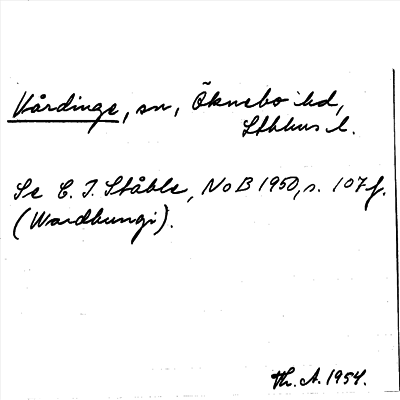 Vårdinge, sn, Öknebo hd,
Sthlms l.
Se C. I. Ståhle, NoB 1950, s. 107 f.
(Wardhungi).
Th. A. 1954.